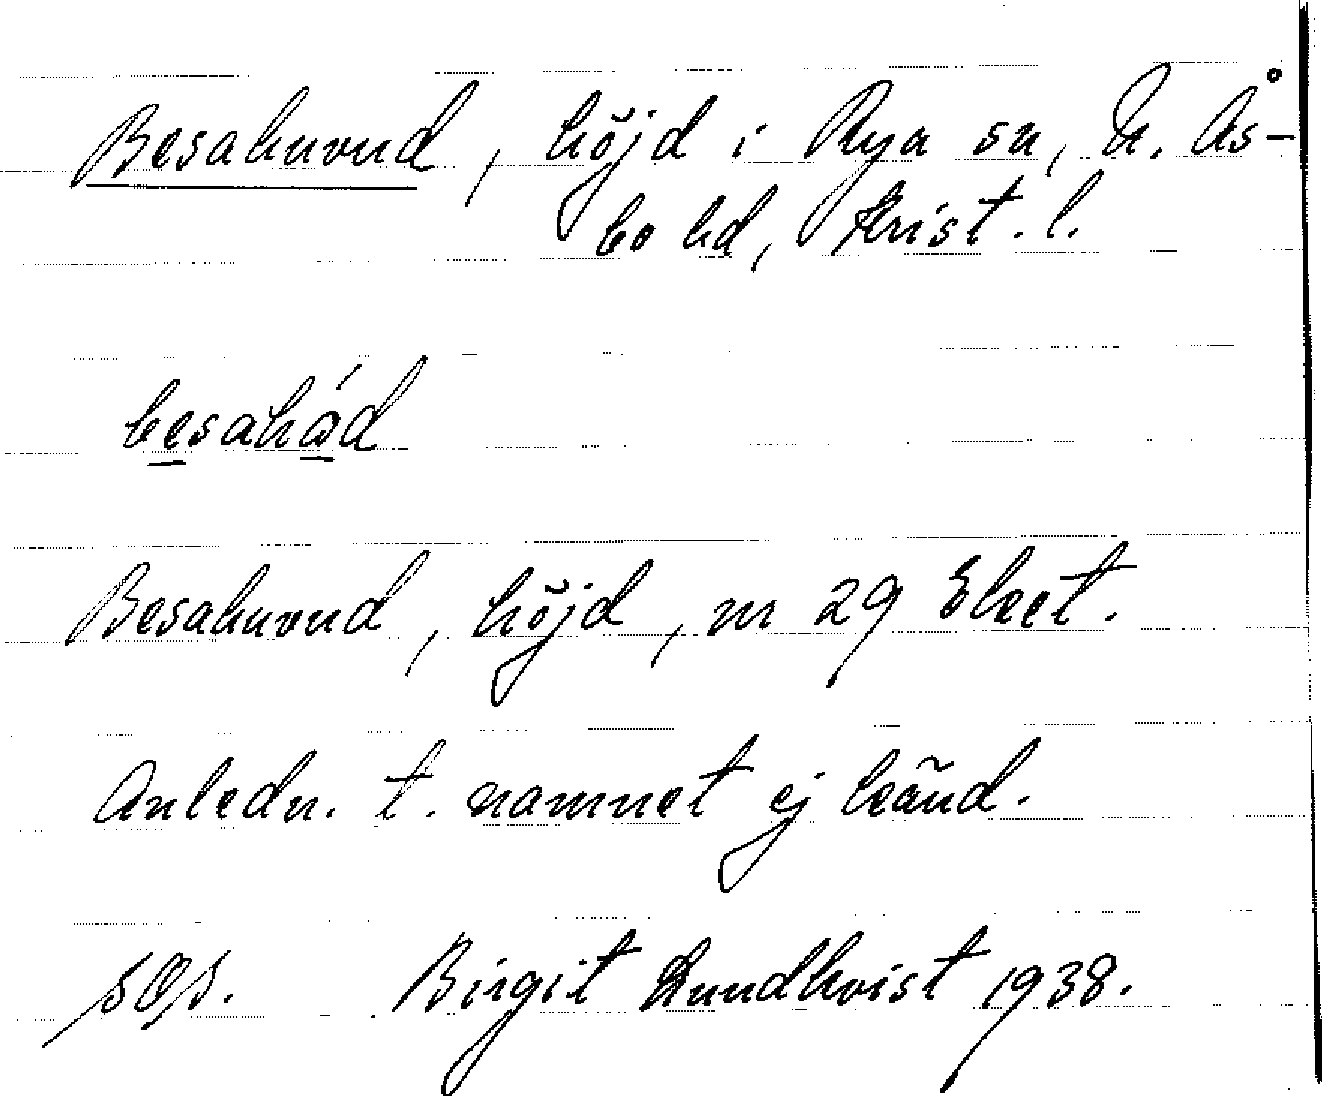 Besahuvud, höjd i Rya sn, N. Ås-
bo hd, Krist. l.
besahǿd
Besahuvud, höjd, nr 29 Eket.
Anledn. t. namnet ej känd.
Birgit Lundkvist 1938.